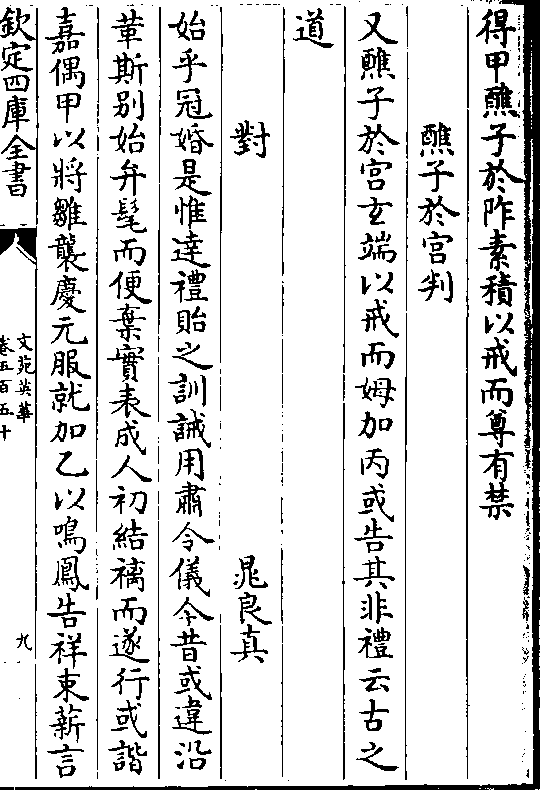 得甲醮子於阼素積以戒而尊有禁
醮子於宫判
又醮子於宫玄端以戒而姆加丙或告其非禮云古之
道
對
晁良真
始乎冠婚是惟達禮貽之訓誡用肅令儀今昔或違沿
革斯别始弁髦而便棄實表成人初結褵而遂行或諧
嘉偶甲以將雛襲慶元服就加乙以鳴鳳告祥束薪言
欽定四庫全書
文苑英華
卷五百五十
九